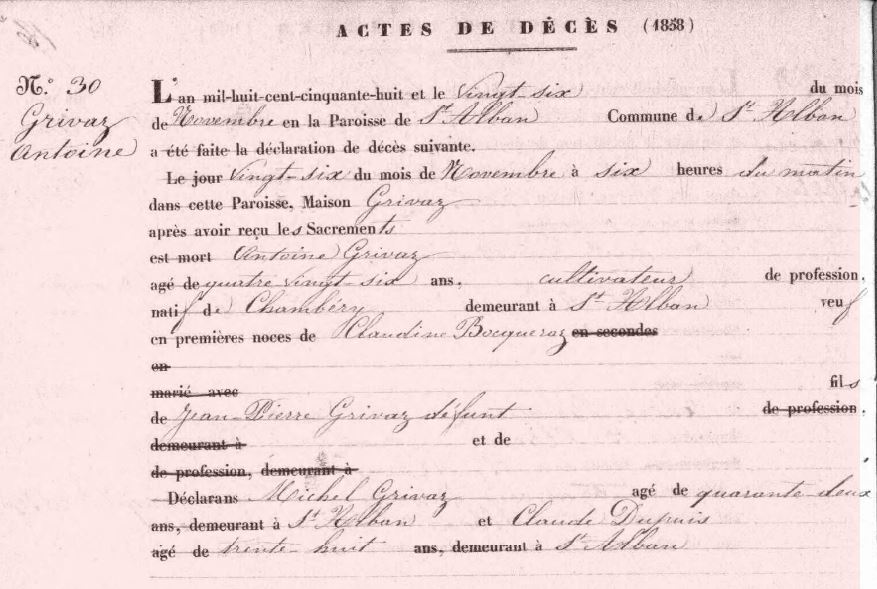 ACTES DE DÉCÈS (1858)
N.o 30
Grivaz
Antoine
L'an mil-huit-cent-cinquante-huit et le vingt-six du mois
de Novembre en la Paroisse de St Alban Commune de St Alban
a été faite la déclaration de décès suivante.
Le jour vingt-six du mois de Novembre à six heures du matin
dans cette Paroisse, Maison Grivaz
après avoir reçu les Sacrements
est mort Antoine Grivaz
agé de quatre vingt-six ans, cultivateur de profession,
natif de Chambéry demeurant à St Alban veuf
en premières noces de Claudine Bocqueraz en secondes
en
marié avec fils
de Jean-Pierre Grivaz défunt de profession,
demeurant à et de
de profession, demeurant à
Déclarans Michel Grivaz agé de quarante-deux
ans, demeurant à St Alban et Claude Dupuis
agé de trente-huit ans, demeurant à St Alban